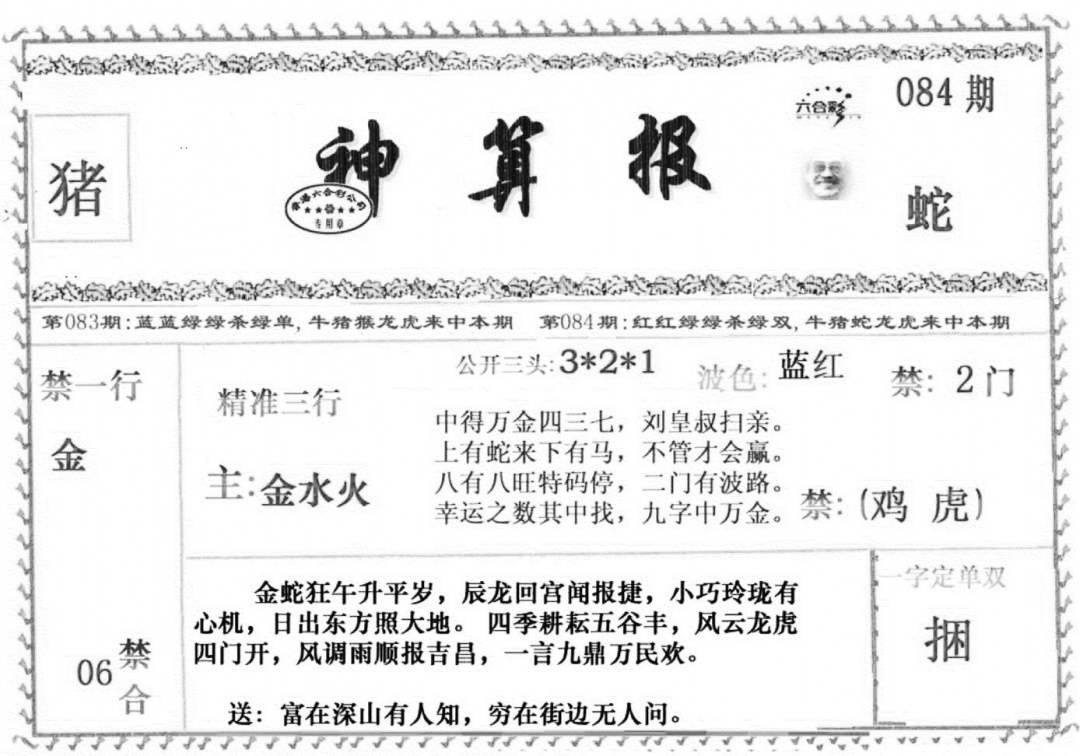 084期
六合彩
猪
神算报
香港六合彩公司
专用章
蛇
第083期:蓝蓝绿绿杀绿单,牛猪猴龙虎来中本期 第084期:红红绿绿杀绿双,牛猪蛇龙虎来中本期
禁一行
金
06禁合
公开三头:3*2*1
波色:蓝红
禁:2门
精准三行
主:金水火
中得万金四三七，刘皇叔扫亲。
上有蛇来下有马，不管才会赢。
八有八旺特码停，二门有波路。
幸运之数其中找，九字中万金。
禁:(鸡 虎)
金蛇狂午升平岁，辰龙回宫闻报捷，小巧玲珑有
心机，日出东方照大地。 四季耕耘五谷丰，风云龙虎
四门开，风调雨顺报吉昌，一言九鼎万民欢。
送：富在深山有人知，穷在街边无人问。
一字定单双
捆